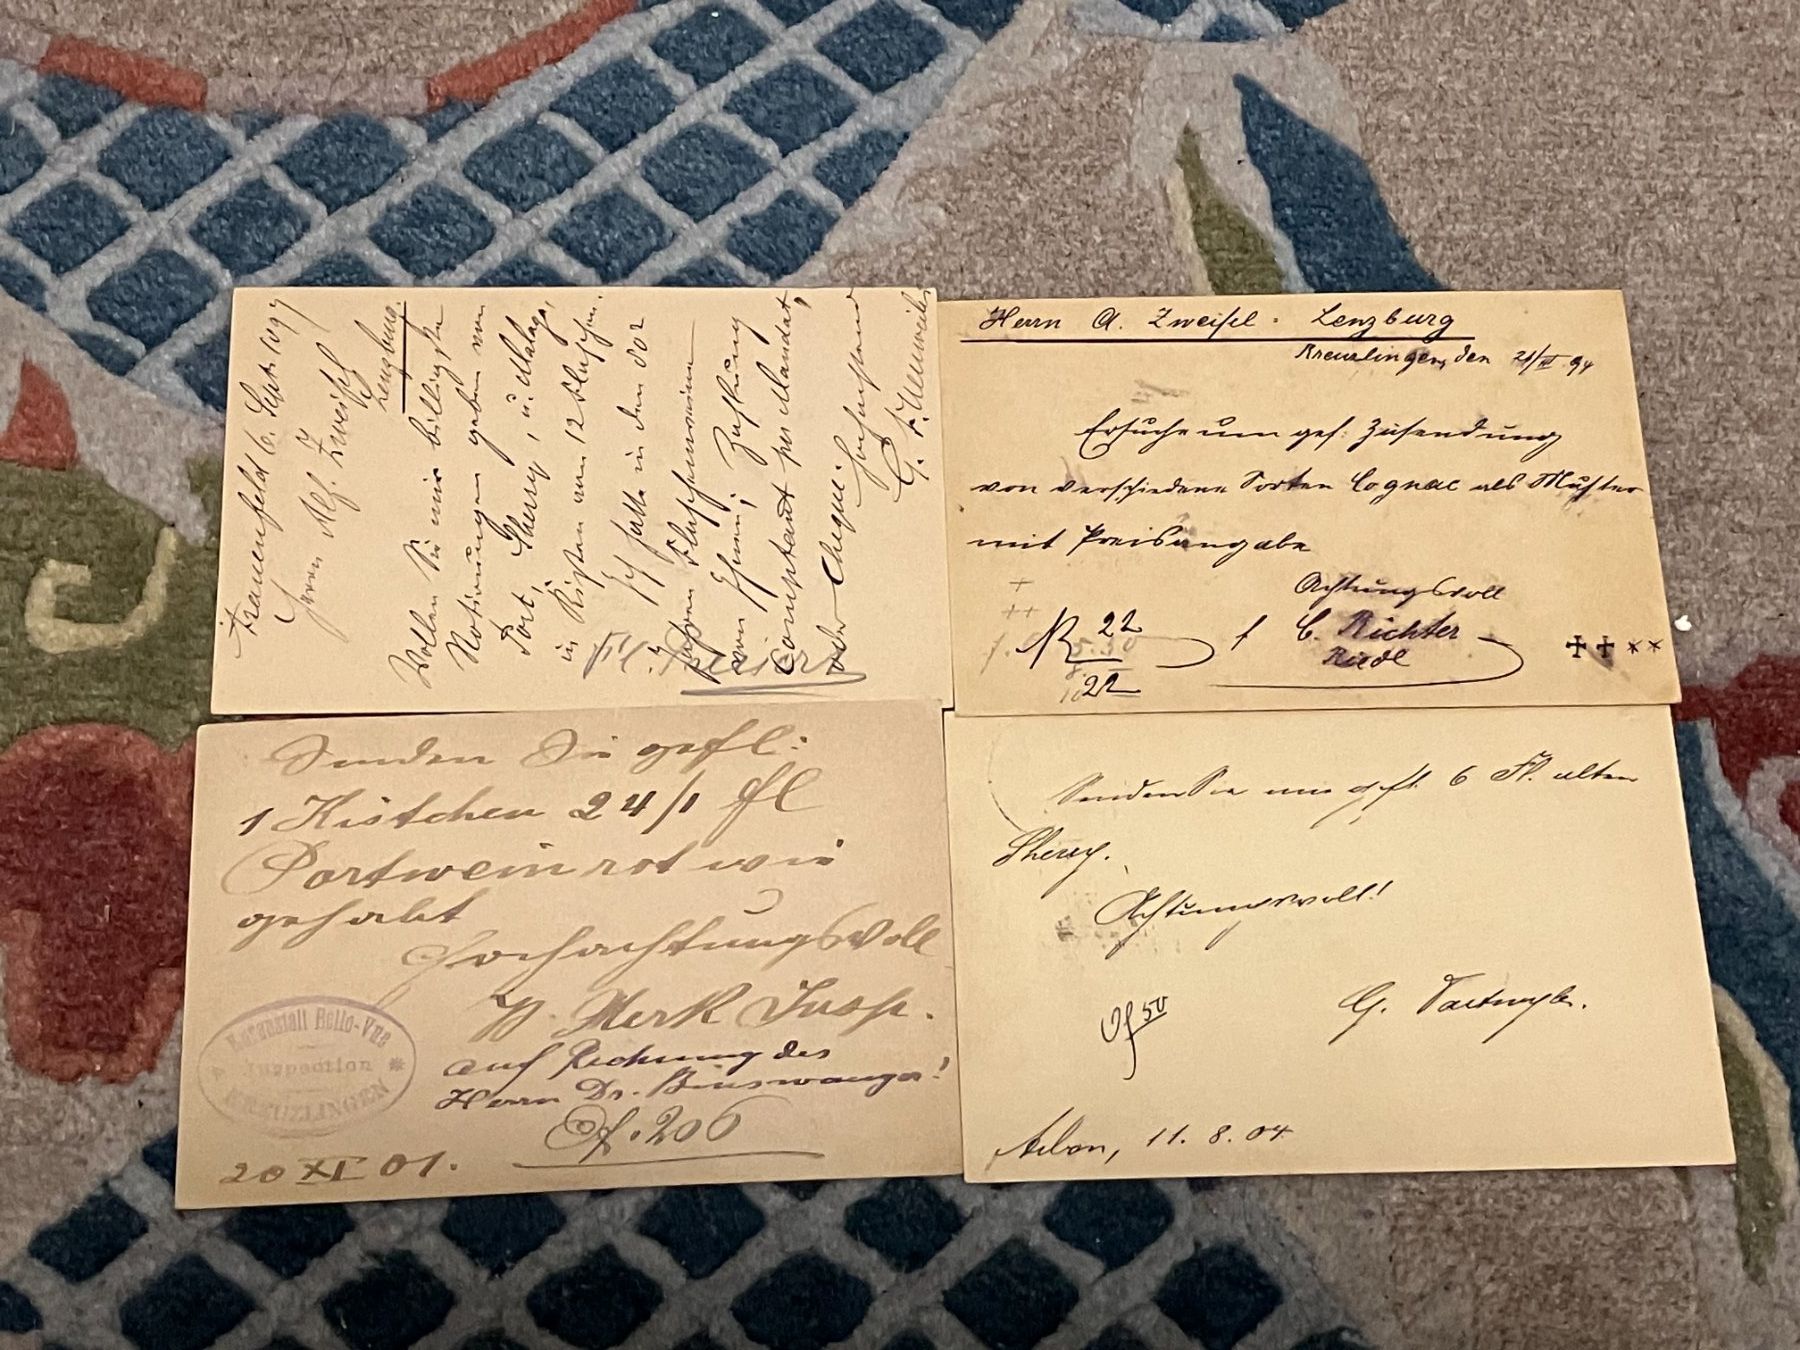 Frauenfeld 6. Sept. 1897
Herrn Alf. Zweifel
Lenzburg.
Wollen Sie mir billigste
Notirungen geben von
Port, Sherry, u. Malaga,
in Kisten von 12 Flaschen.
Ich halte in den
Flaschenweine
von Ihnen; Zahlung
Comptant per Mandat,
oder Cheque.
Hochachtend
Herrn A. Zweifel. Lenzburg
Kreuzlingen, den 21/ 94
Ersuche um gef. Zusendung
von verschiedene Sorten Cognac als Muster
mit Preisangabe
Achtungsvoll
C. Richter
Riedl
R 22
22
Senden Sie gefl:
1 Kistchen 24/1 fl
Portwein rot wie
gehabt
Hochachtungsvoll
Merk Insp.
auf Rechnung des
Herrn Dr. Binswanger!
206
Kuranstalt Bello-Vue
Inspection
KREUZLINGEN
20 XI 01.
Senden Sie uns gefl. 6 Fl. alten
Sherry.
Achtungsvoll!
G.
50
Arbon, 11. 8. 04